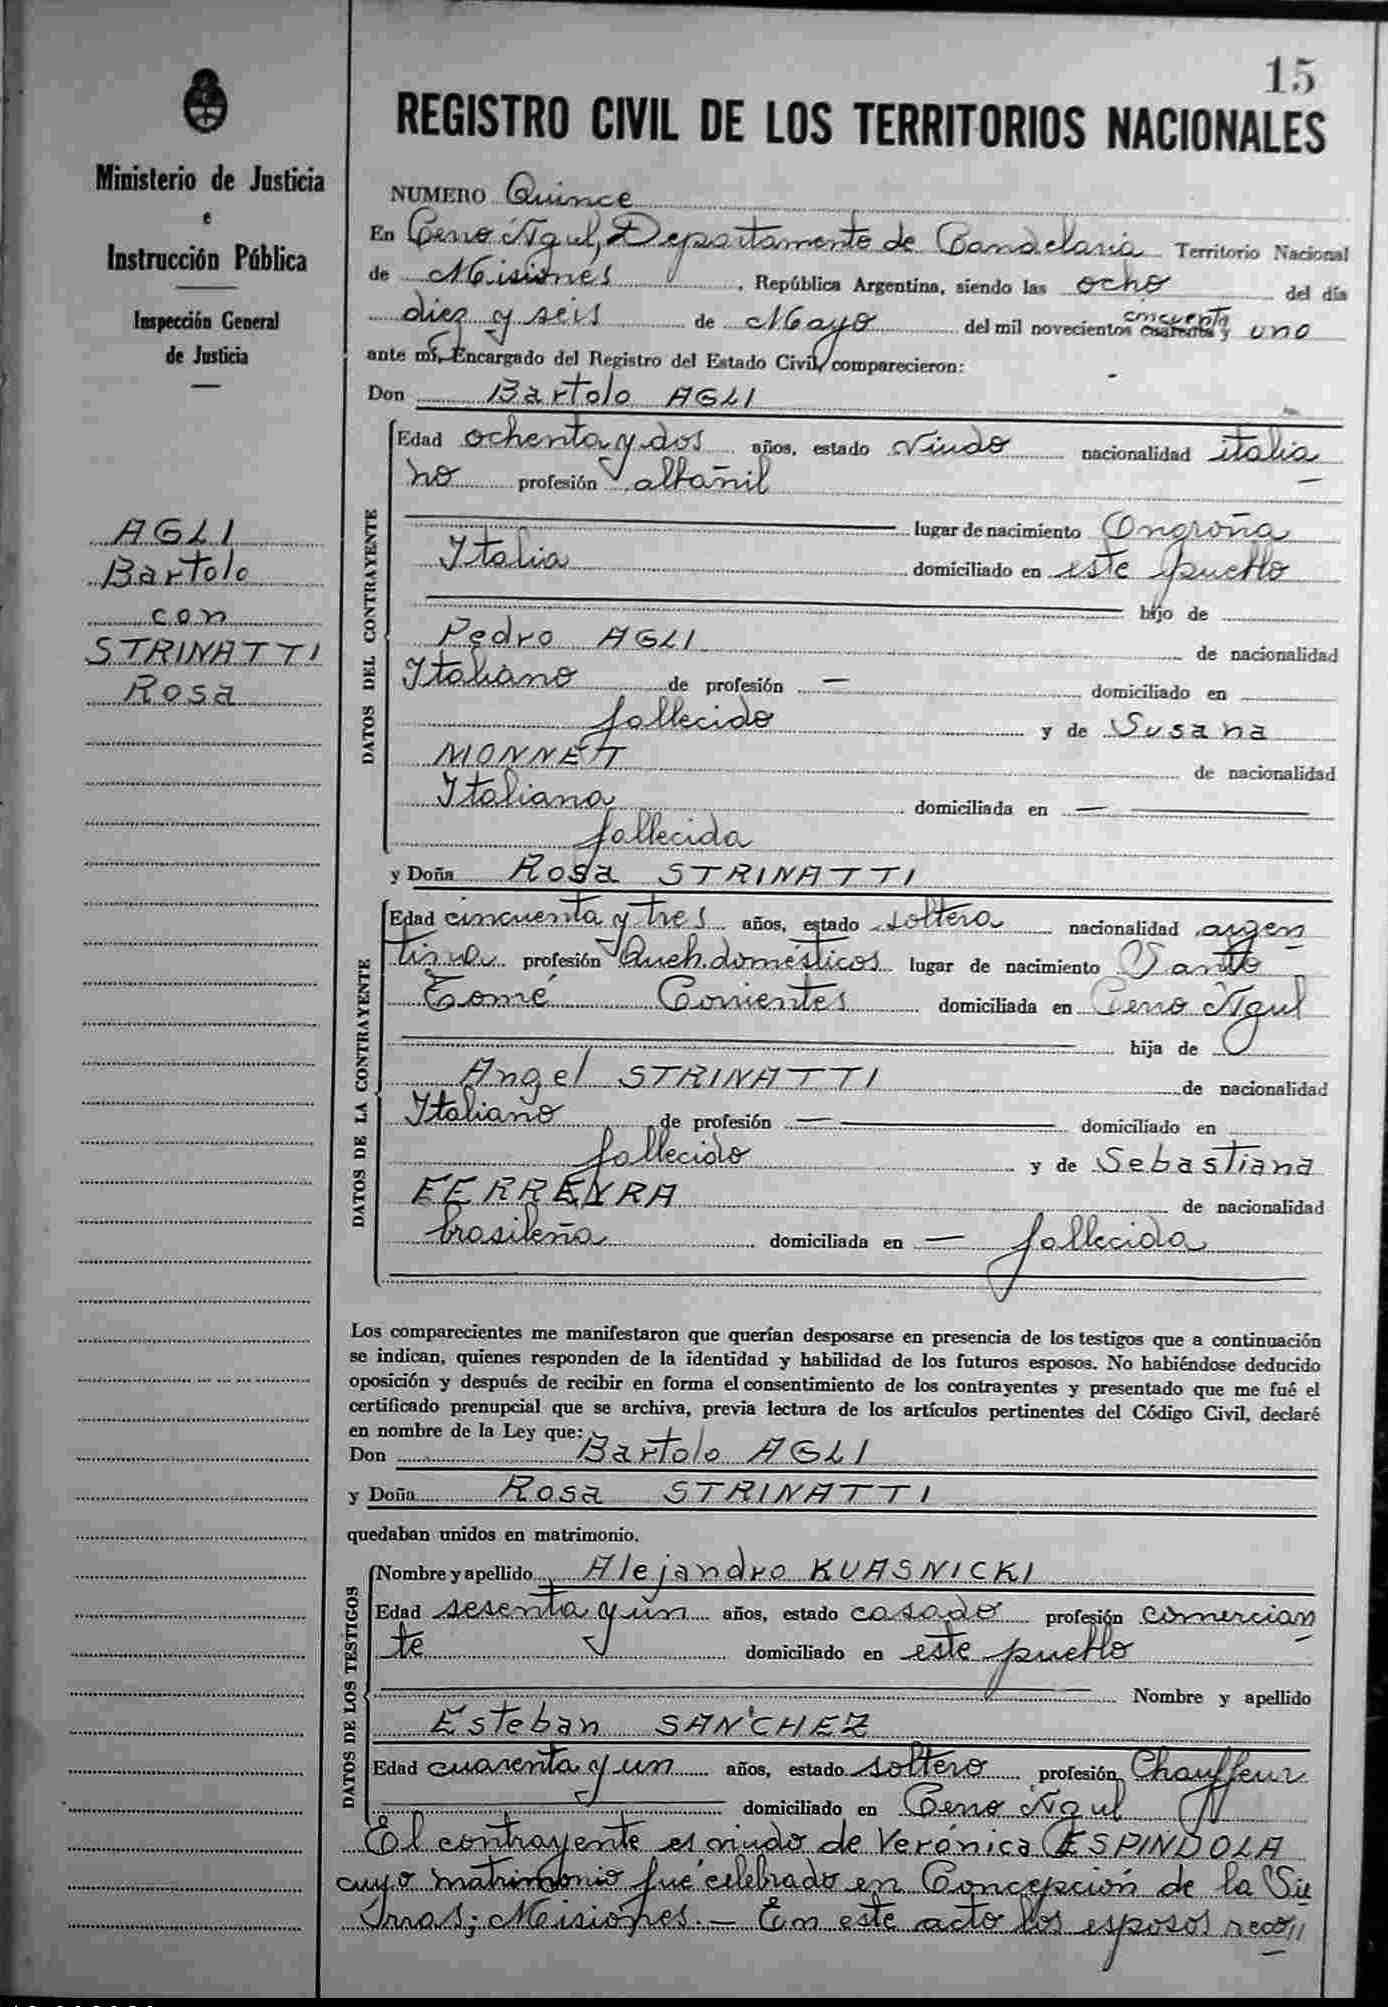 15
REGISTRO CIVIL DE LOS TERRITORIOS NACIONALES
Ministerio de Justicia
e
Instrucción Pública
Inspección General
de Justicia
AGLI
Bartolo
con
STRINATTI
Rosa
NUMERO Quince
En Cerro Azul, Departamento de Candelaria Territorio Nacional
de Misiones, República Argentina, siendo las ocho del día
diez y seis de Mayo del mil novecientos cuarenta y cincuenta uno
ante mí, Encargado del Registro del Estado Civil, comparecieron:
Don Bartolo AGLI
DATOS DEL CONTRAYENTE
Edad ochenta y dos años, estado viudo nacionalidad italia
no profesión albañil
lugar de nacimiento Ongroña
Italia domiciliado en este pueblo
hijo de
Pedro AGLI de nacionalidad
Italiano de profesión — domiciliado en
fallecido y de Susana
MONNET de nacionalidad
Italiana domiciliada en —
fallecida
y Doña Rosa STRINATTI
DATOS DE LA CONTRAYENTE
Edad cincuenta y tres años, estado soltera nacionalidad argen
tina profesión Queh. domésticos lugar de nacimiento Santo
Tomé Corrientes domiciliada en Cerro Azul
hija de
Angel STRINATTI de nacionalidad
Italiano de profesión — domiciliado en
fallecido y de Sebastiana
FERREYRA de nacionalidad
brasileña domiciliada en — fallecida
Los comparecientes me manifestaron que querían desposarse en presencia de los testigos que a continuación
se indican, quienes responden de la identidad y habilidad de los futuros esposos. No habiéndose deducido
oposición y después de recibir en forma el consentimiento de los contrayentes y presentado que me fué el
certificado prenupcial que se archiva, previa lectura de los artículos pertinentes del Código Civil, declaré
en nombre de la Ley que:
Don Bartolo AGLI
y Doña Rosa STRINATTI
quedaban unidos en matrimonio.
DATOS DE LOS TESTIGOS
Nombre y apellido Alejandro KUASNICKI
Edad sesenta y un años, estado casado profesión comercian
te domiciliado en este pueblo
Nombre y apellido
Esteban SANCHEZ
Edad cuarenta y un años, estado soltero profesión Chauffeur
domiciliado en Cerro Azul
El contrayente es viudo de Verónica ESPINDOLA
cuyo matrimonio fué celebrado en Concepción de la Sie
rras; Misiones. — En este acto los esposos reco